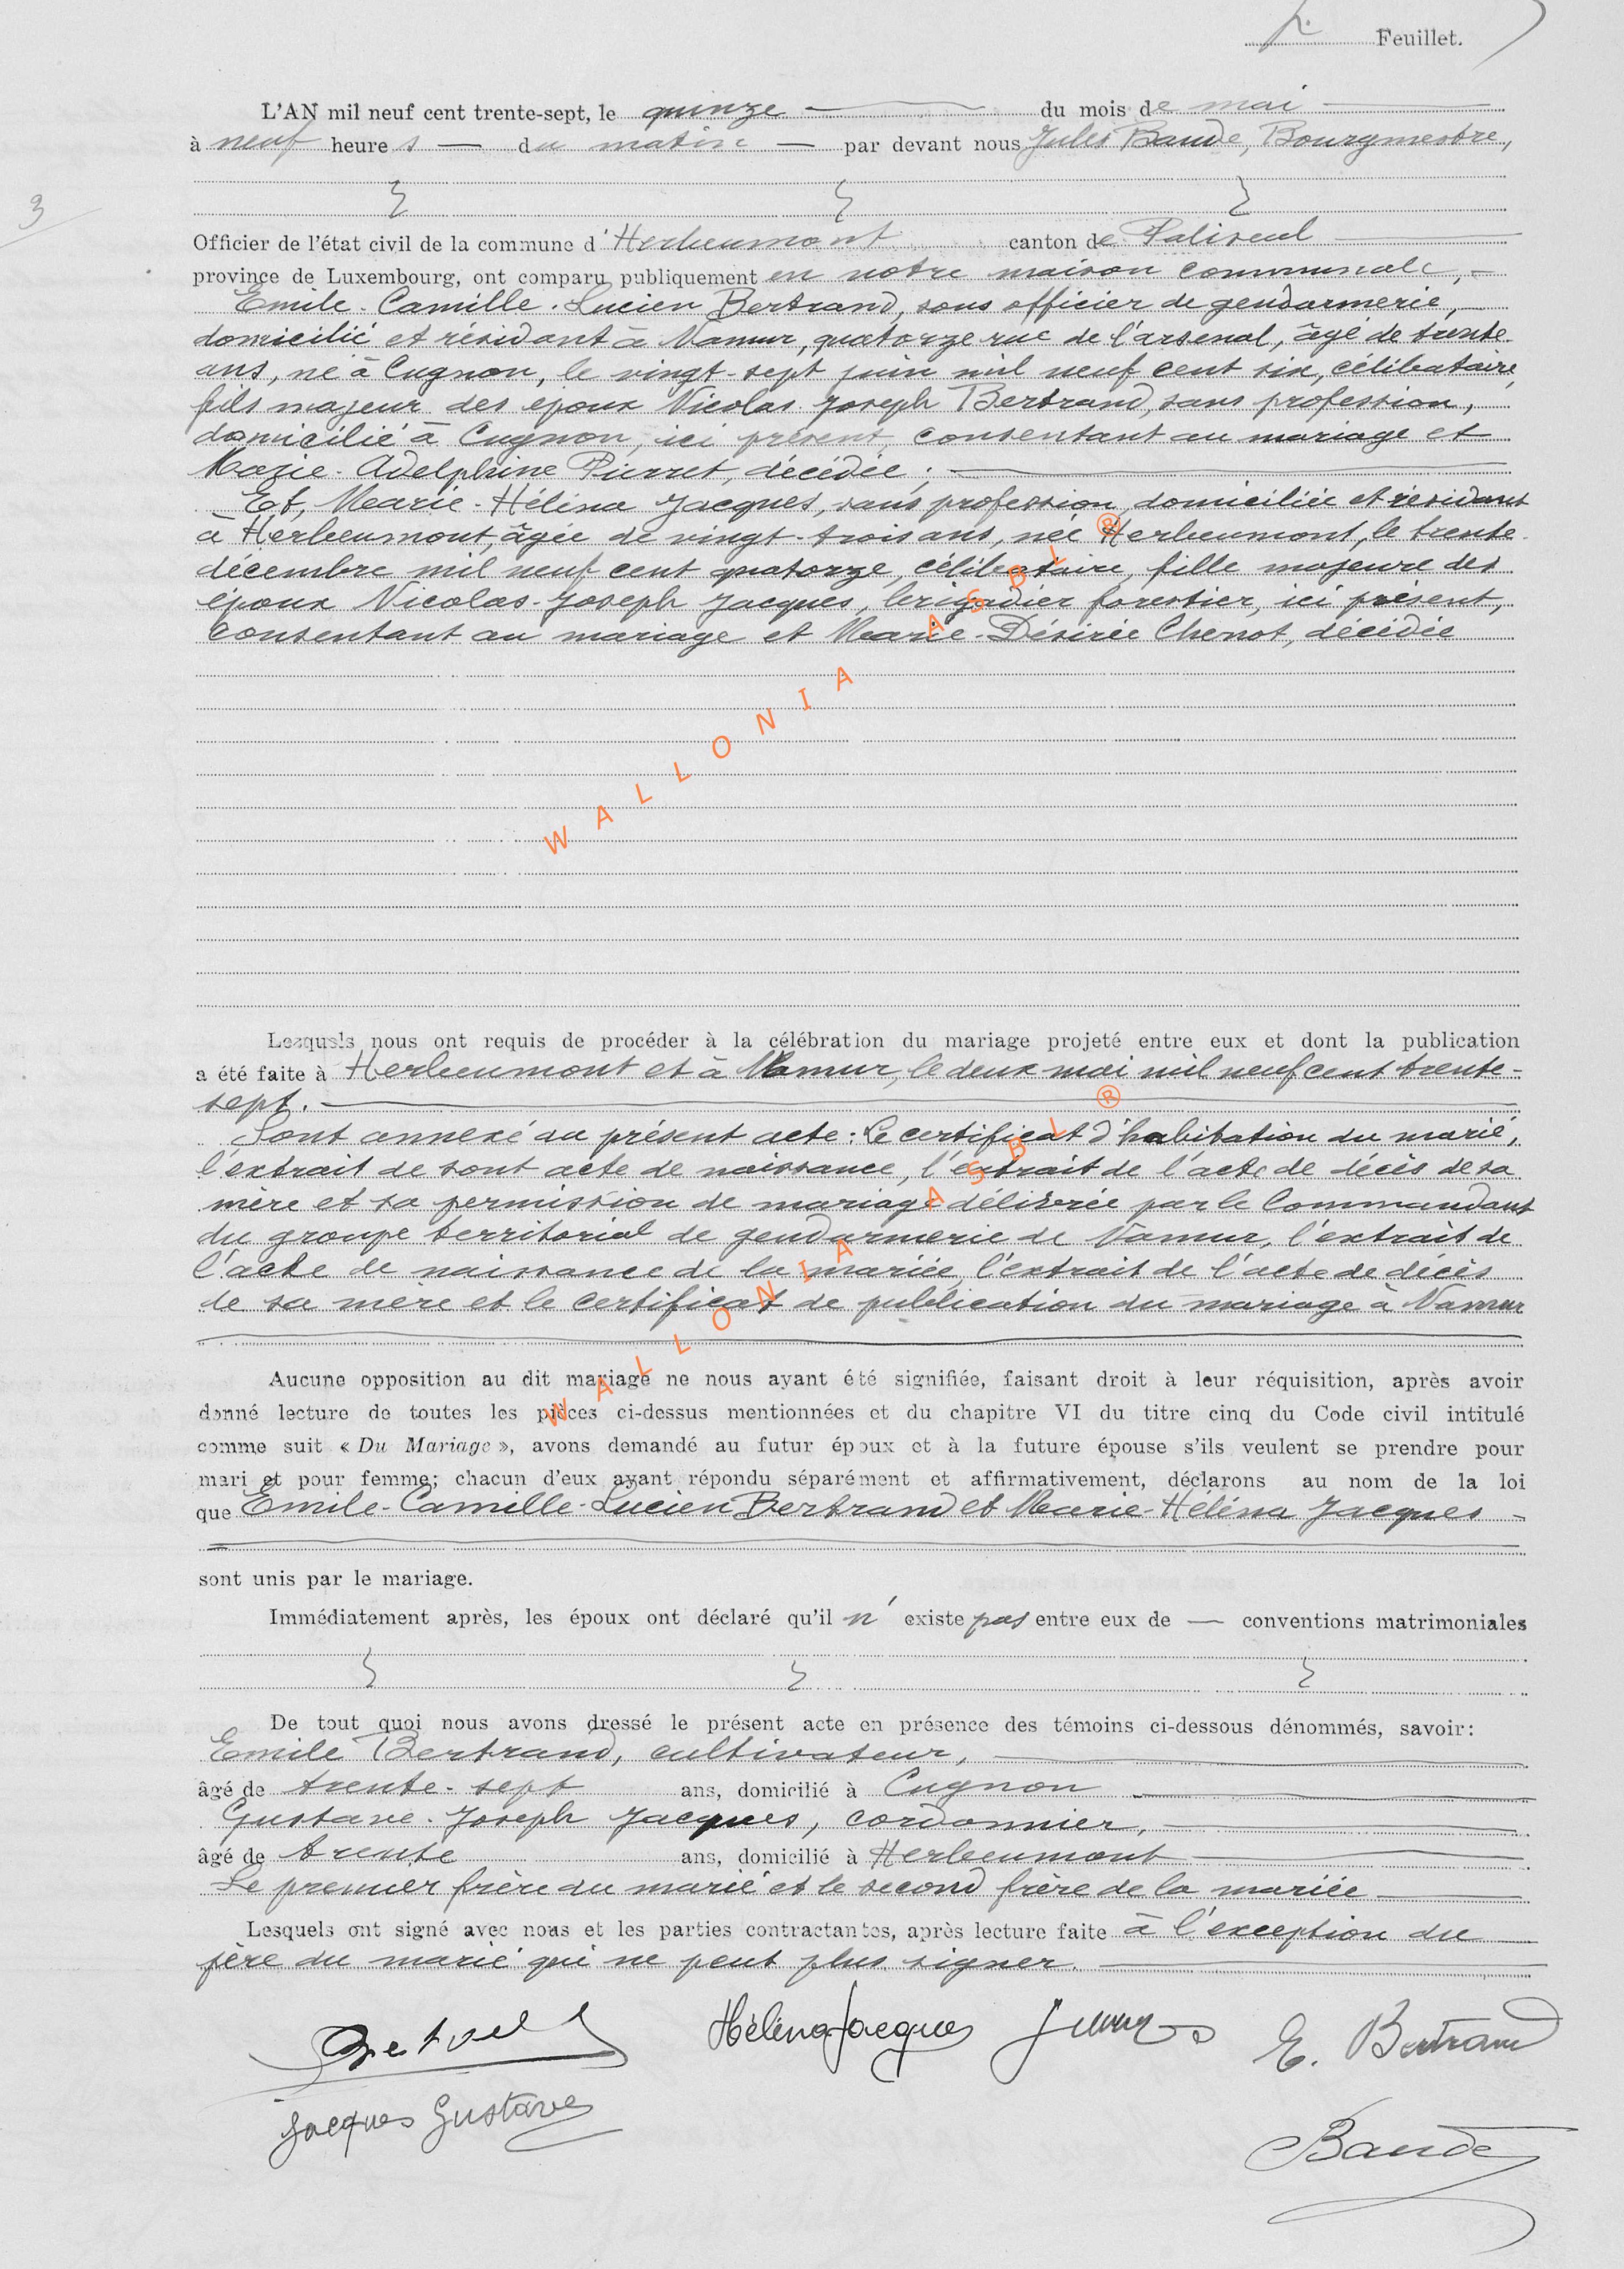 Feuillet.
L'AN mil neuf cent trente-sept, le quinze du mois de mai
à neuf heures du matin par devant nous Jules Baude, Bourgmestre,
3
Officier de l'état civil de la commune d'Herbeumont canton de Paliseul
province de Luxembourg, ont comparu publiquement en notre maison communale,
Emile-Camille-Lucien Bertrand, sous officier de gendarmerie,
domicilié et résidant à Namur, quatorze rue de l'arsenal, âgé de trente
ans, né à Cugnon, le vingt-sept juin mil neuf cent six, célibataire,
fils majeur des époux Nicolas Joseph Bertrand, sans profession,
domicilié à Cugnon, ici présent, consentant au mariage et
Marie-Adelphine Pierret, décédée;
Et, Marie-Hélèna Jacques, sans profession, domiciliée et résidant
à Herbeumont, âgée de vingt-trois ans, née Herbeumont, le trente
décembre mil neuf cent quatorze, célibataire, fille majeure des
époux Nicolas-Joseph Jacques, brigadier forestier, ici présent,
consentant au mariage et Marie-Désirée Chenot, décédée
WALLONIA ASBL ®
Lesquels nous ont requis de procéder à la célébration du mariage projeté entre eux et dont la publication
a été faite à Herbeumont et à Namur, le deux mai mil neuf cent trente-
sept.
Sont annexé au présent acte: Le certificat d'habitation du marié,
l'extrait de sont acte de naissance, l'extrait de l'acte de décès de sa
mère et sa permission de mariage délivrée par le Commandant
du groupe territorial de gendarmerie de Namur, l'extrait de
l'acte de naissance de la mariée, l'extrait de l'acte de décès
de sa mère et le certificat de publication du mariage à Namur
WALLONIA ASBL ®
Aucune opposition au dit mariage ne nous ayant été signifiée, faisant droit à leur réquisition, après avoir
donné lecture de toutes les pièces ci-dessus mentionnées et du chapitre VI du titre cinq du Code civil intitulé
comme suit « Du Mariage », avons demandé au futur époux et à la future épouse s'ils veulent se prendre pour
mari et pour femme; chacun d'eux ayant répondu séparément et affirmativement, déclarons au nom de la loi
que Emile-Camille-Lucien Bertrand et Marie-Hélèna Jacques
sont unis par le mariage.
Immédiatement après, les époux ont déclaré qu'il n'existe pas entre eux de — conventions matrimoniales
De tout quoi nous avons dressé le présent acte en présence des témoins ci-dessous dénommés, savoir:
Emile Bertrand, cultivateur,
âgé de trente-sept ans, domicilié à Cugnon
Gustave-Joseph Jacques, cordonnier,
âgé de trente ans, domicilié à Herbeumont
Le premier frère du marié et le second frère de la mariée
Lesquels ont signé avec nous et les parties contractantes, après lecture faite à l'exception du
père du marié qui ne peut plus signer.
Héléna Jacques E. Bertrand
Jacques Gustave
Baude